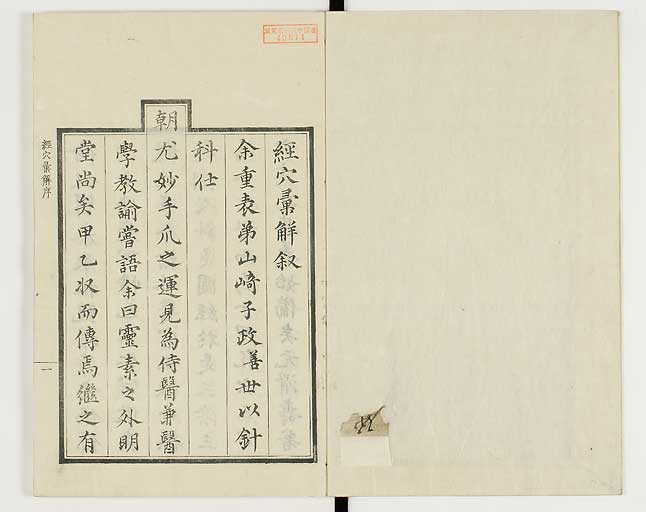 經穴彙解叙
余重表弟山崎子政善世以針
科仕
朝尤妙手爪之運見為侍醫兼醫
學教諭嘗語余曰靈素之外明
堂尚矣甲乙収而傳焉繼之有
經穴彙解序
一